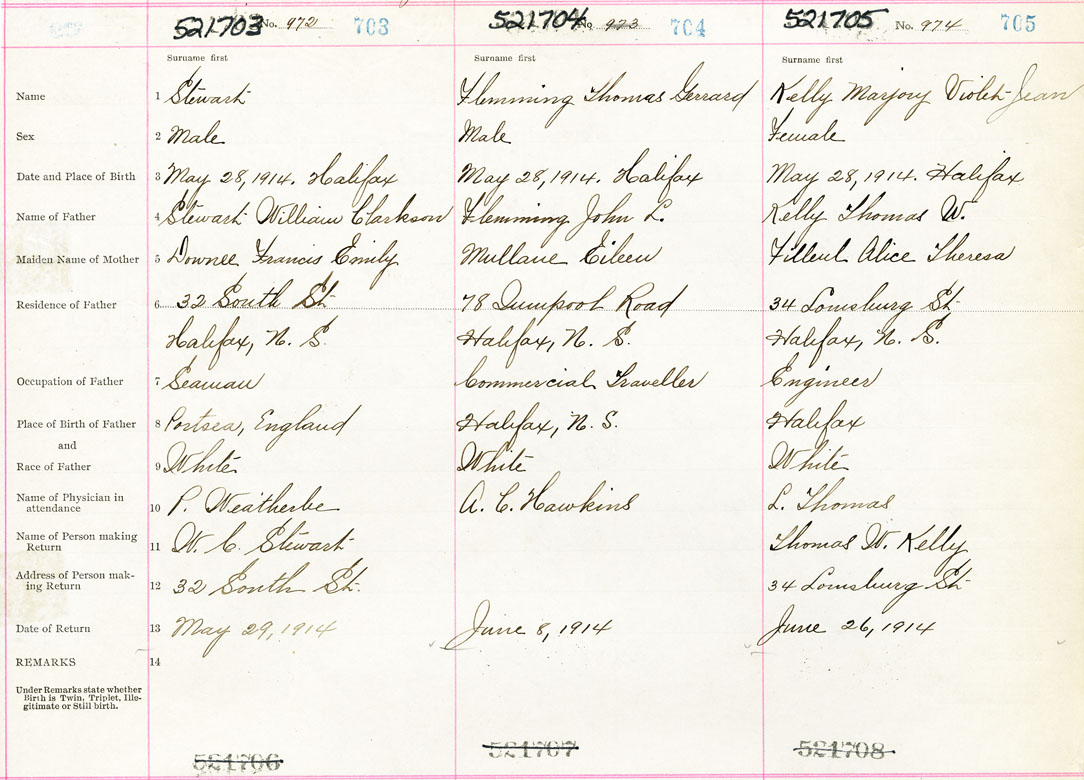 521703 No. 972 703
521704 No 973 704
521705 No. 974 705
Surname first
Surname first
Surname first
Name 1 Stewart
Flemming Thomas Gerrard
Kelly Marjory Violet Jean
Sex 2 Male
Male
Female
Date and Place of Birth 3 May 28, 1914. Halifax
May 28, 1914. Halifax
May 28, 1914. Halifax
Name of Father 4 Stewart William Clarkson
Flemming John L.
Kelly Thomas W.
Maiden Name of Mother 5 Downee Francis Emily
Mullane Eileen
Filleul Alice Theresa
Residence of Father 6 32 South St.
78 Road
34 Louisburg St.
Halifax, N. S.
Halifax, N. S.
Halifax, N. S.
Occupation of Father 7 Seaman
Commercial Traveller
Engineer
Place of Birth of Father 8 Portsea, England
Halifax, N. S.
Halifax
and
Race of Father 9 White
White
White
Name of Physician in
attendance 10 P. Weatherbe
A. C. Hawkins
L. Thomas
Name of Person making
Return 11 W. C. Stewart
Thomas W. Kelly
Address of Person mak-
ing Return 12 32 South St.
34 Louisburg St.
Date of Return 13 May 29, 1914
June 8, 1914
June 26, 1914
REMARKS 14
Under Remarks state whether
Birth is Twin, Triplet, Ille-
gitimate or Still birth.
521706
521707
521708